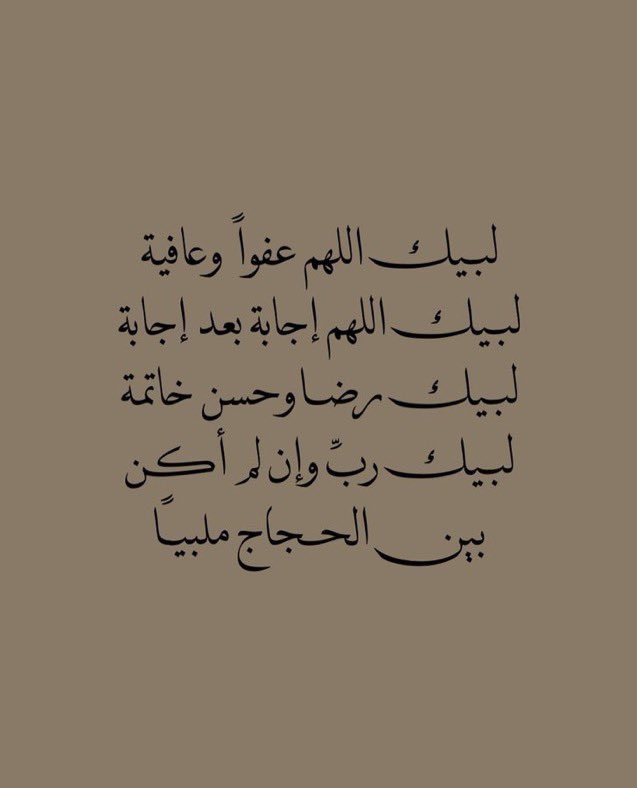 لبيك اللهم عفواً وعافية
لبيك اللهم إجابة بعد إجابة
لبيك رضا وحسن خاتمة
لبيك ربِّ وإن لم أكن
بين الحجاج ملبياً